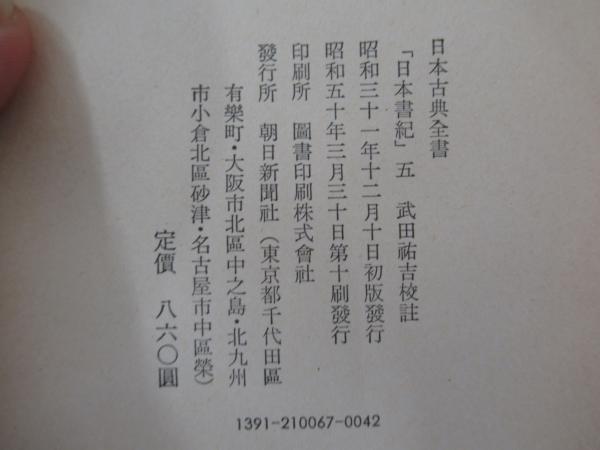 日本古典全書
「日本書紀」五　武田祐吉校註
昭和三十一年十二月十日初版發行
昭和五十年三月三十日第十刷發行
印刷所　圖書印刷株式會社
發行所　朝日新聞社（東京都千代田區
有樂町・大阪市北區中之島・北九州
市小倉北區砂津・名古屋市中區榮）
定價　八六〇圓
1391-210067-0042